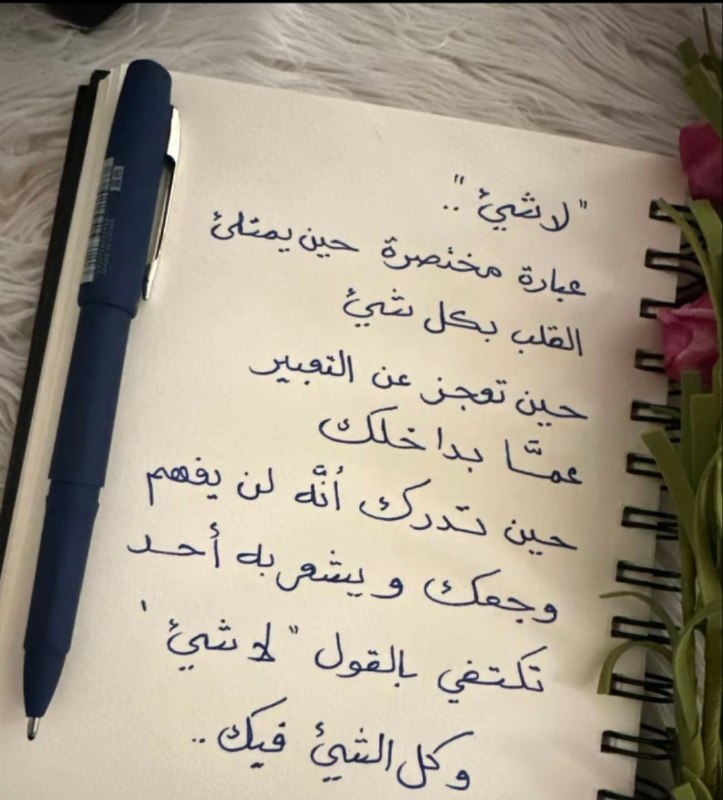 "لا شيئ" ..
عبارة مختصرة حين يمتلئ
القلب بكل شيئ
حين تعجز عن التعبير
عمَّا بداخلك
حين تدرك أنَّه لن يفهم
وجعك ويشعر به أحد
تكتفي بالقول "لا شيئ"
وكل الشيئ فيك ..